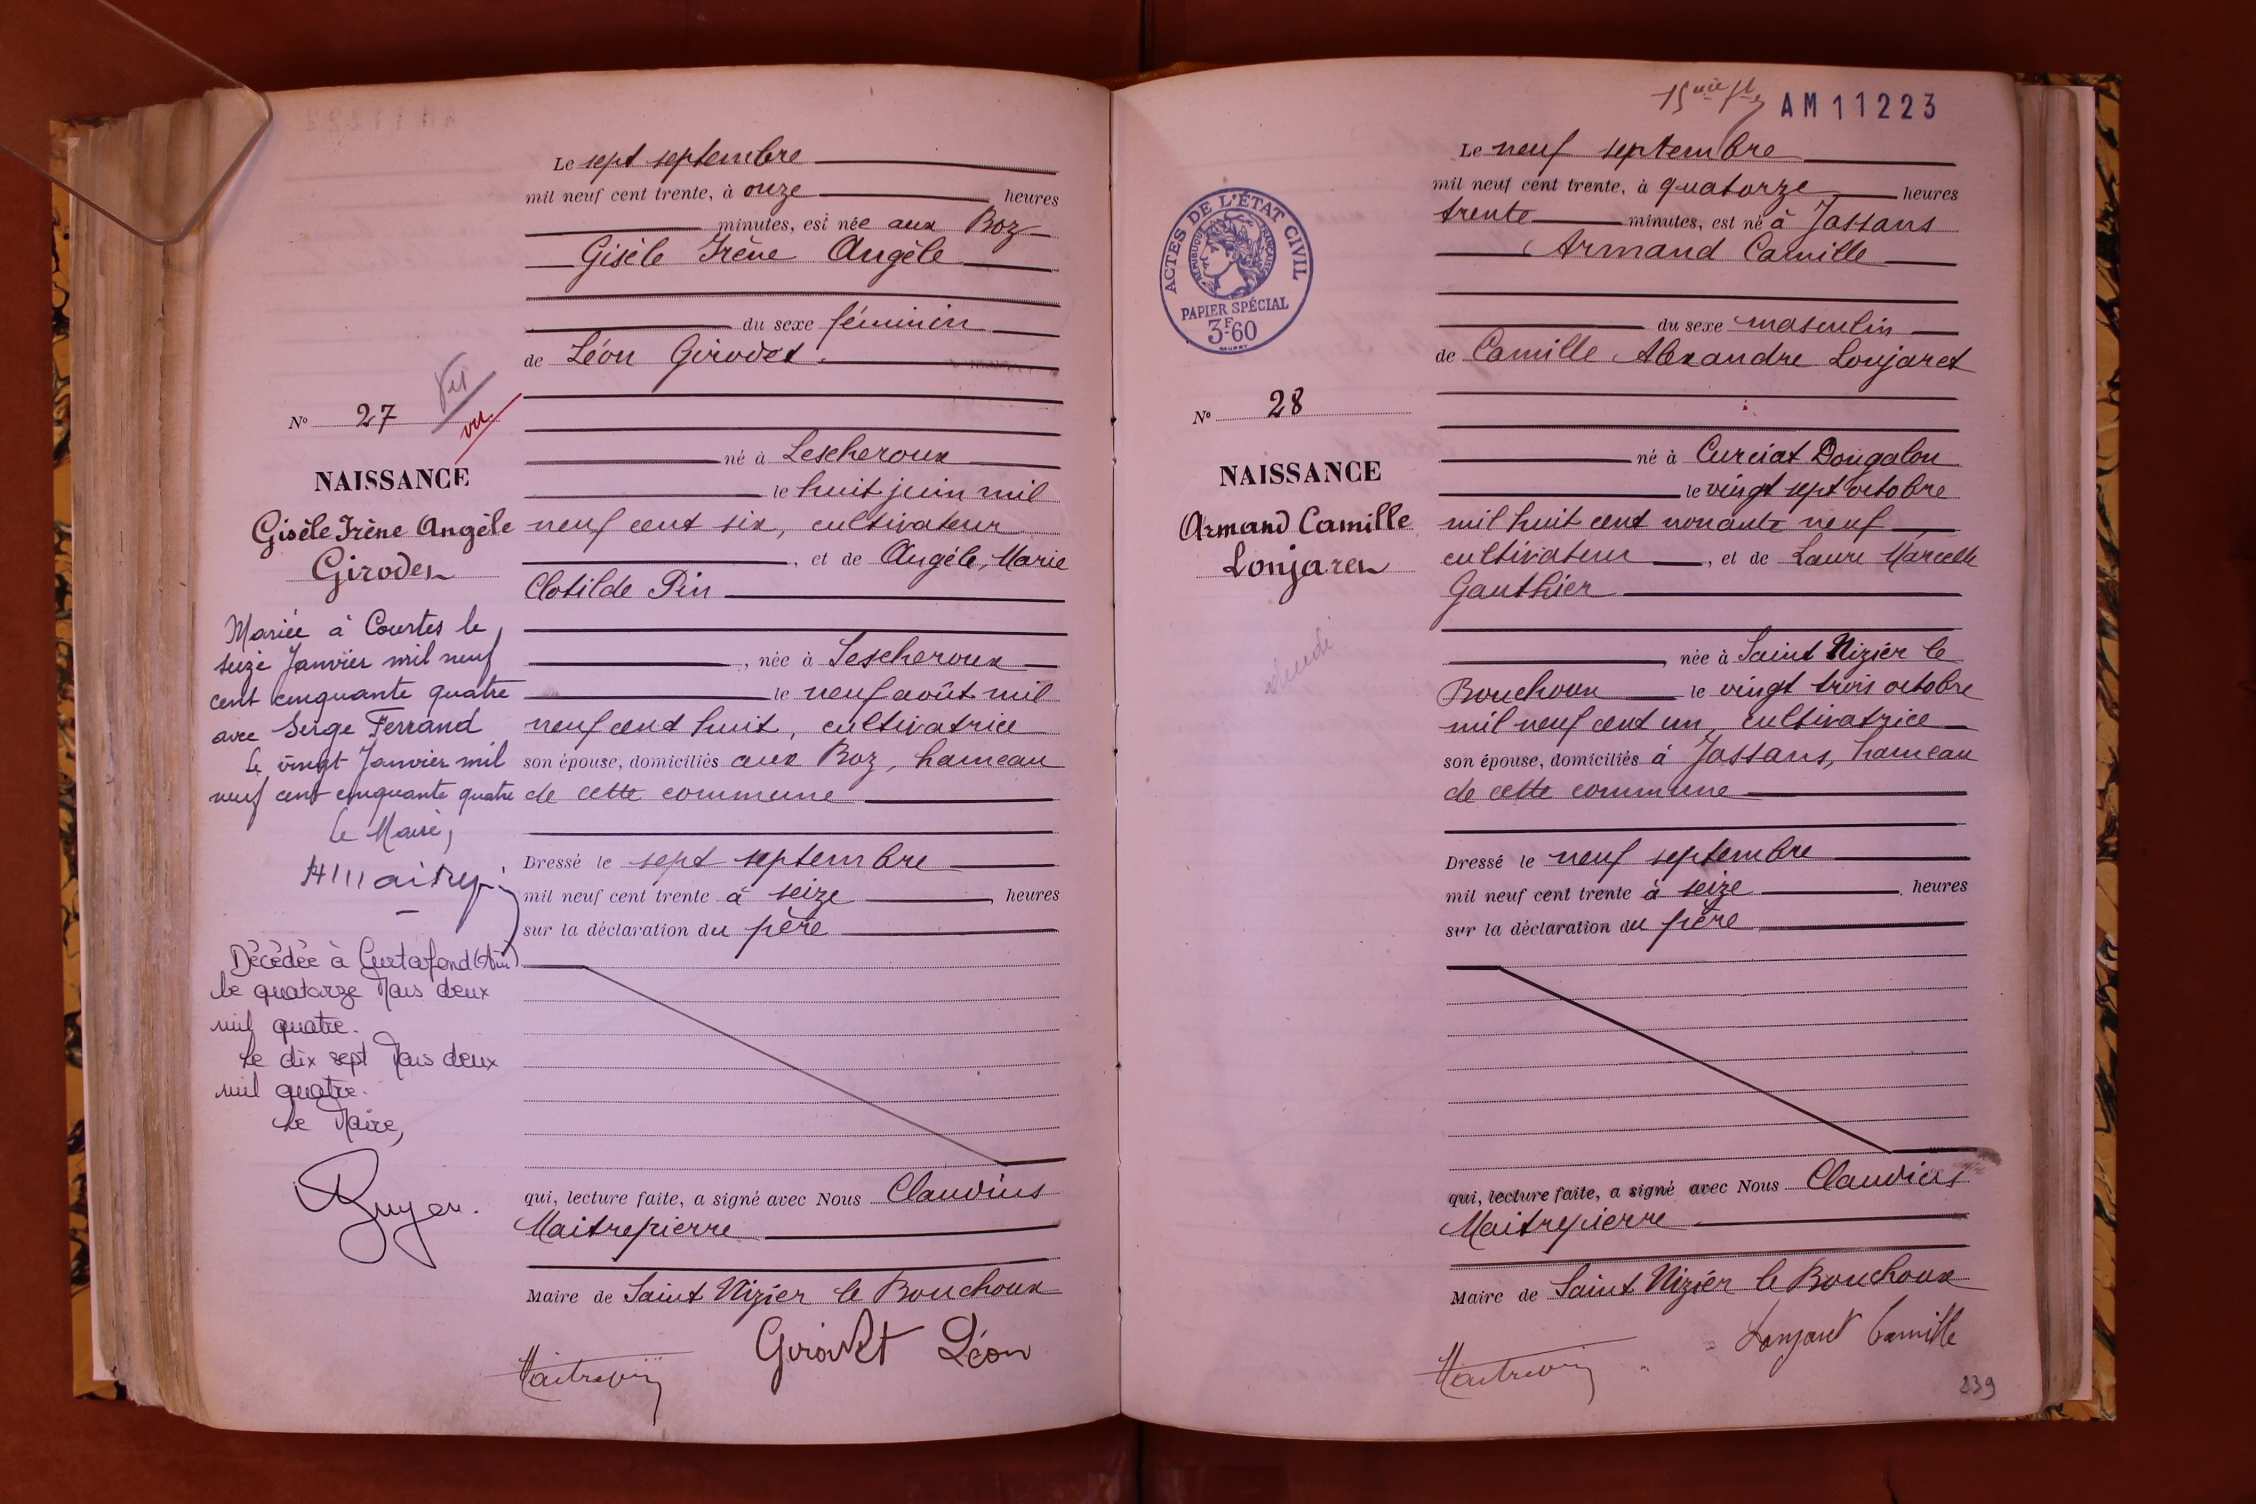 Le sept septembre
mil neuf cent trente, à onze heures
minutes, est née aux Boz
Gisèle Irène Angèle
du sexe féminin
de Léon Girodet.
N° 27
vu
né à Lescheroux
NAISSANCE
le huit juin mil
Gisèle Irène Angèle
neuf cent six, cultivateur
Girodet
, et de Angèle, Marie
Clotilde Pin
Mariée à Courtes le
seize Janvier mil neuf
cent cinquante quatre
avec Serge Ferrand
Le vingt Janvier mil
neuf cent cinquante quatre
Le Maire,
, née à Lescheroux
le neuf août mil
neuf cent huit, cultivatrice
son épouse, domiciliés aux Boz, hameau
de cette commune
Dressé le sept septembre
mil neuf cent trente à seize heures
sur la déclaration du père
Décédée à Curtafond (Ain)
le quatorze Mars deux
mil quatre.
Le dix sept Mars deux
mil quatre.
Le Maire,
qui, lecture faite, a signé avec Nous Claudius
Maitrepierre
Maire de Saint Nizier le Bouchoux
Girodet Léon
AM11223
Le neuf septembre
mil neuf cent trente, à quatorze heures
trente minutes, est né à Jassans
Armand Camille
ACTES DE L'ÉTAT CIVIL
RÉPUBLIQUE FRANÇAISE
PAPIER SPÉCIAL
3F-60
du sexe masculin
de Camille Alexandre Lonjaret
N° 28
né à Curciat Dongalon
NAISSANCE
le vingt sept octobre
Armand Camille
mil huit cent nonante neuf
Lonjaret
cultivateur, et de Laure Marcelle
Gauthier
, née à Saint Nizier le
Bouchoux le vingt trois octobre
mil neuf cent un, cultivatrice
son épouse, domiciliés à Jassans, hameau
de cette commune
Dressé le neuf septembre
mil neuf cent trente à seize heures
sur la déclaration du père
qui, lecture faite, a signé avec Nous Claudius
Maitrepierre
Maire de Saint Nizier le Bouchoux
Lonjaret Camille
239